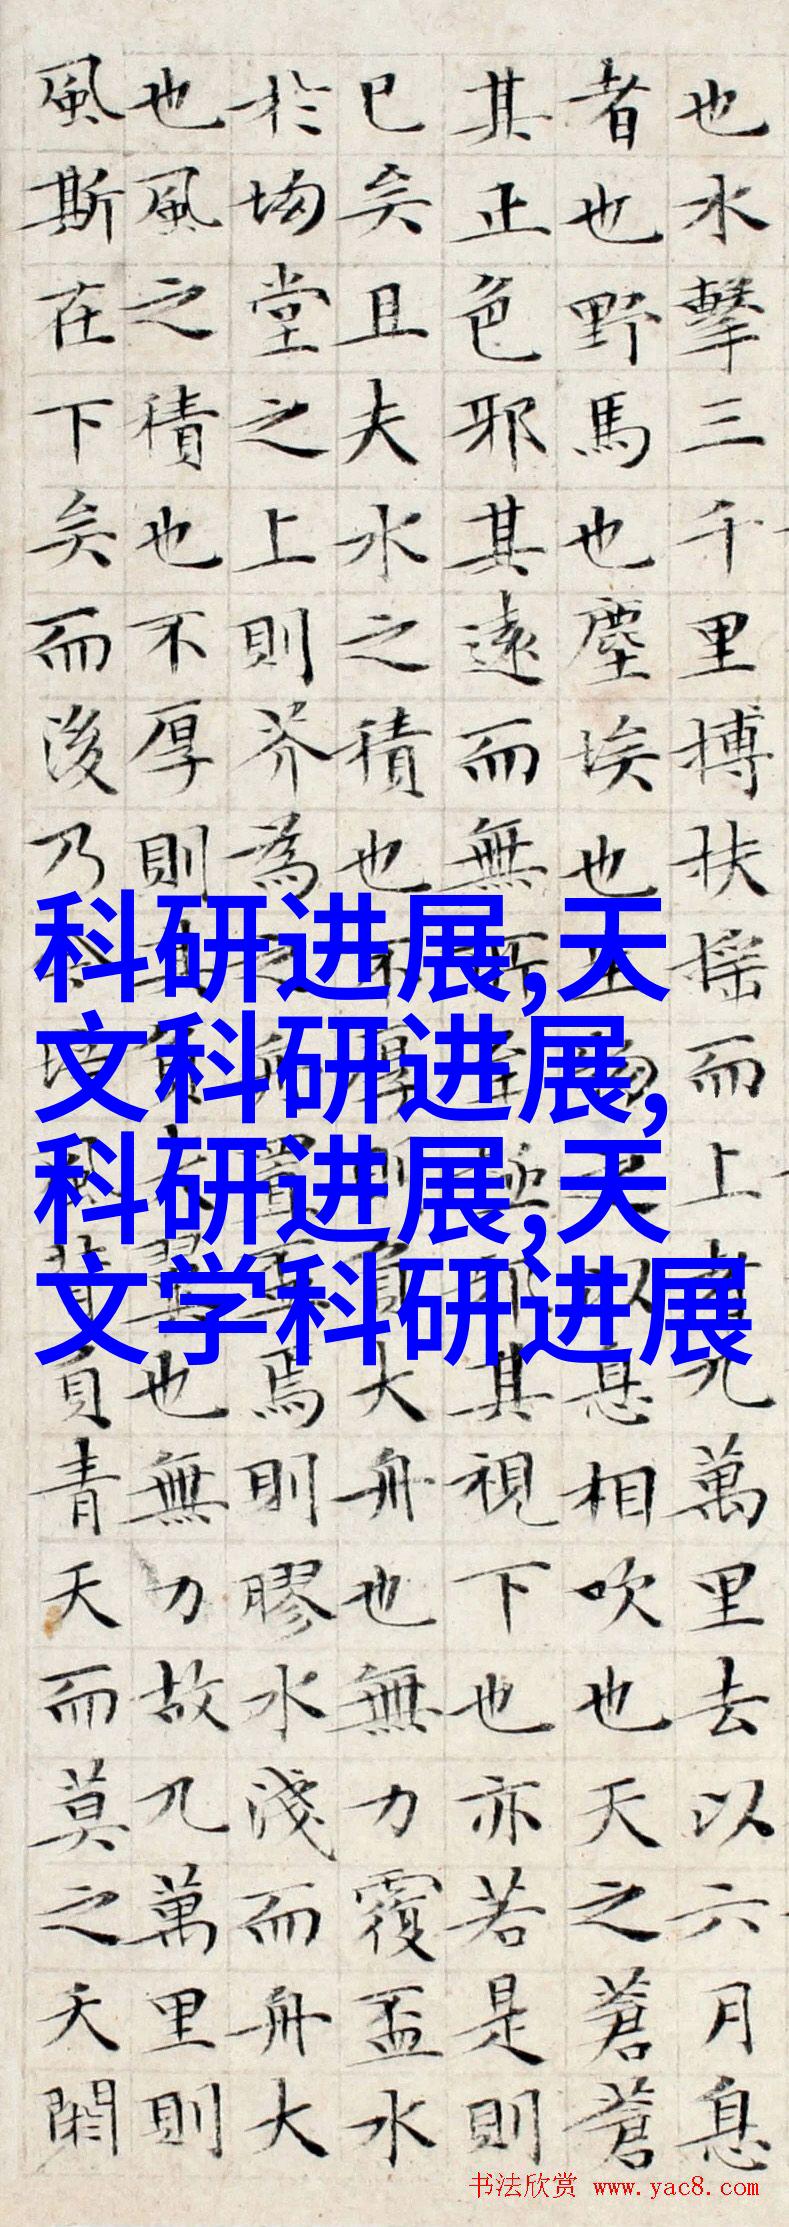 也水擊三千里搏扶搖而上者九萬里去以六月息
者也野馬也塵埃也生物之以息相吹也天之蒼蒼
其正色邪其遠而無所至極邪其視下也亦若是則
已矣且夫水之積也不厚則負大舟也無力覆盃水
於坳堂之上則芥為之舟置盃焉則膠水淺而舟大
也風之積也不厚則其負大翼也無力故九萬里則
風斯在下矣而後乃今培風背負青天而莫之夭閼
科研进展,天
文科研进展,
科研进展,天
文学科研进展
书法欣赏 www.yac8.com